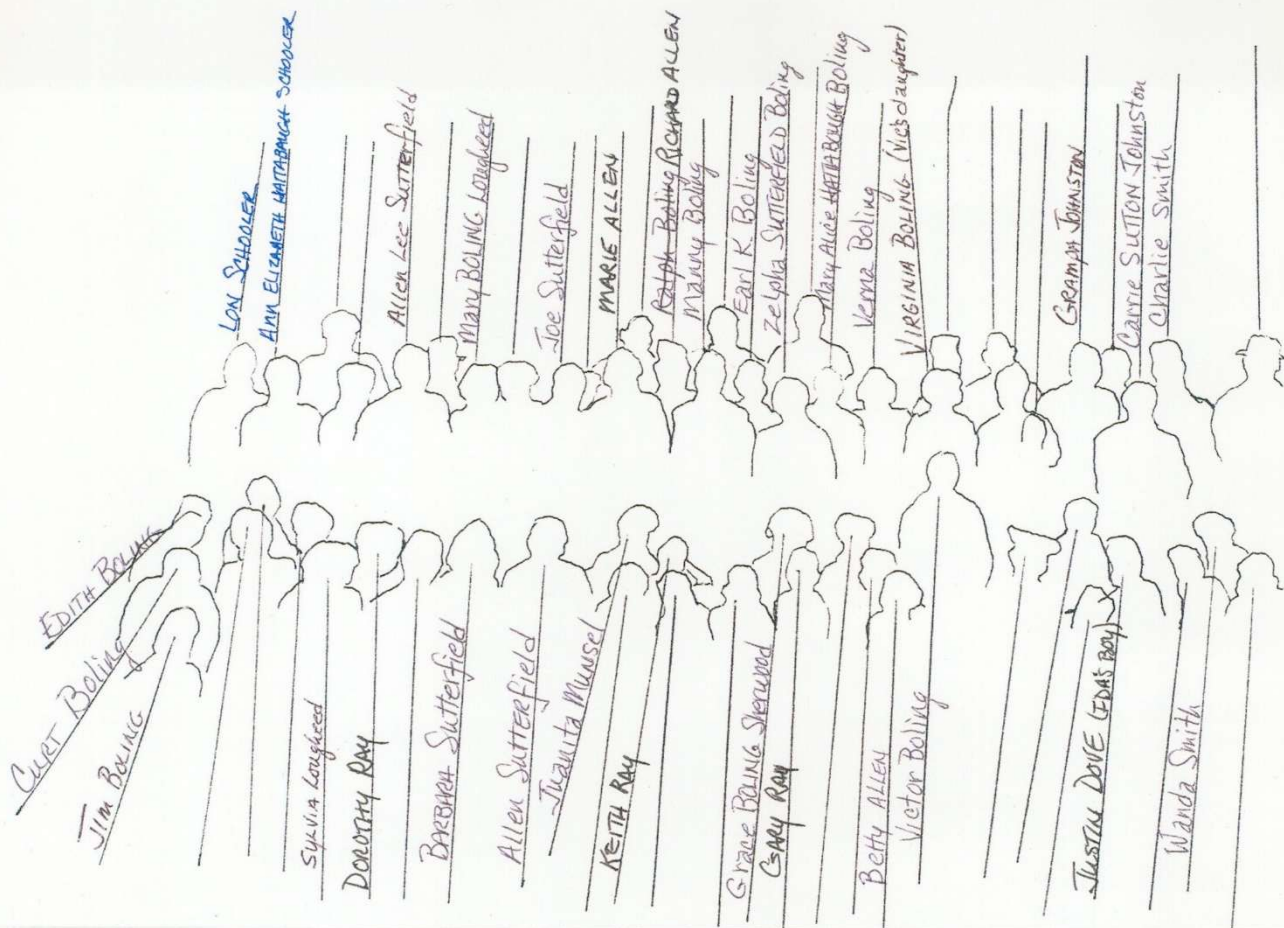 LON SCHOOLER
Ann ELIZABETH HATTABAUGH SCHOOLER
Allen Lee Sutterfield
Mary BOLING Lougheed
Joe Sutterfield
MARIE ALLEN
Ralph Boling RICHARD ALLEN
Manny Boling
Earl K. Boling
Zelpha SUTTERFIELD Boling
Mary Alice HATTABOUGH Boling
Verna Boling
VIRGINIA BOLING (Vic's daughter)
GRAMPA JOHNSTON
Carrie SUTTON Johnston
Charlie Smith
EDITH BOLING
CURT BOLING
JIM BOLING
SYLVIA Lougheed
DOROTHY RAY
BARBARA Sutterfield
Allen SUTTERfield
Juanita MUNSEL
KEITH RAY
Grace BOLING Sherwood
GARY RAY
Betty ALLEN
Victor Boling
JUSTIN DOVE (IDAS BOY)
Wanda Smith